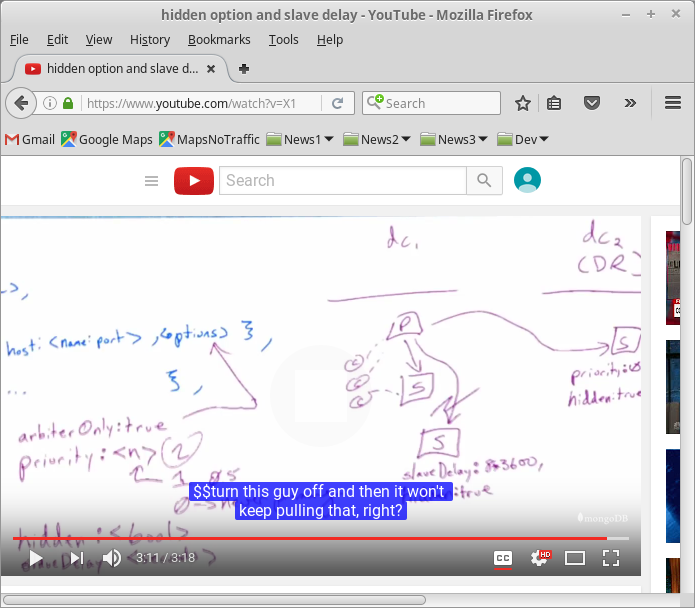 hidden option and slave delay - YouTube - Mozilla Firefox
File Edit View History Bookmarks Tools Help
hidden option and slave d...
https://www.youtube.com/watch?v=X1
Search
Gmail Google Maps MapsNoTraffic News1 News2 News3 Dev
Search
dc1
dc2
(DR)
host: <name:port>, <options> },
},
...
arbiterOnly:true
priority:<n> 2
P
S
S
S
c
c
c
hidden:true
slaveDelay: 8*3600,
$$turn this guy off and then it won't
keep pulling that, right?
:true
hidden:<bool>
mongoDB
3:11 / 3:18
CC
HD